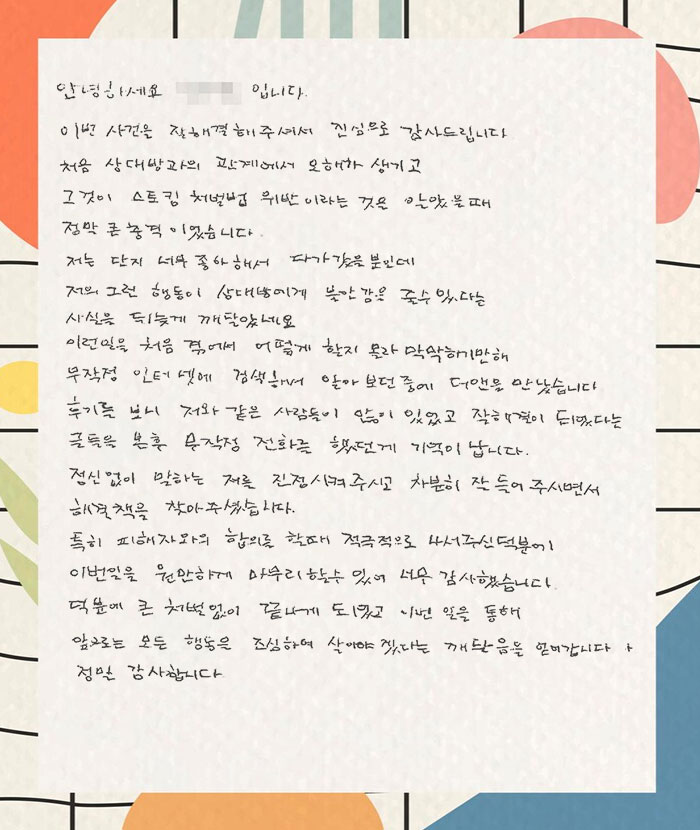 안녕하세요 입니다.
이번 사건을 잘해결해주셔서 진심으로 감사드립니다
처음 상대방과의 관계에서 오해가 생기고
그것이 스토킹 처벌법 위반이라는 것을 알았을때
정막 큰 충격이었습니다.
저는 단지 너무 좋아해서 다가갔을뿐인데
저의 그런 행동이 상대방에게 불안감을 줄수있다는
사실을 뒤늦게 깨달았네요
이런일을 처음 겪어서 어떻게 할지 몰라 막막하기만해
무작정 인터넷에 검색해서 알아보던중에 더앤을 만났습니다
후기를 보니 저와 같은 사람들이 많이 있었고 잘해결이 되었다는
글들을 본후 무작정 전화를 했던게 기억이 납니다.
정신없이 말하는 저를 진정시켜주시고 차분히 잘 들어주시면서
해결책을 찾아주셨습니다.
특히 피해자와의 합의를 할때 적극적으로 나서주신덕분에
이번일을 원만하게 마무리할수있어 너무 감사했습니다.
덕분에 큰 처벌없이 끝나게 되었고 이번 일을 통해
앞으로는 모든 행동을 조심하며 살아야겠다는 깨달음을 얻어갑니다
정말 감사합니다